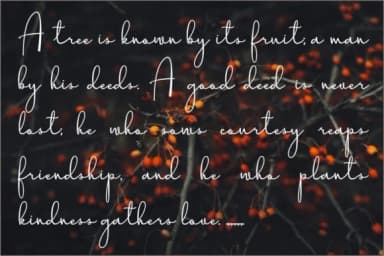 A tree is known by its fruit; a man
by his deeds. A good deed is never
lost; he who sows courtesy reaps
friendship, and he who plants
kindness gathers love.